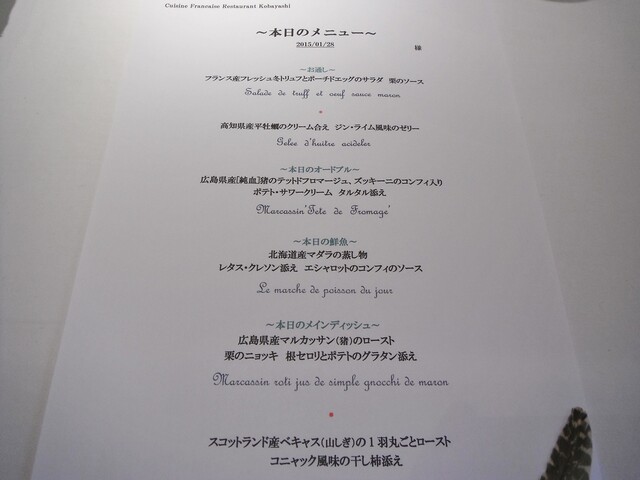 Cuisine Francaise Restaurant Kobayashi
～本日のメニュー～
2015/01/28
様
～お通し～
フランス産フレッシュ冬トリュフとポーチドエッグのサラダ 栗のソース
Salade de truff et oeuf sauce maron
*
高知県産平牡蠣のクリーム合え ジン・ライム風味のゼリー
Gelee d'huitre acideler
～本日のオードブル～
広島県産[純血]猪のテットドフロマージュ、ズッキーニのコンフィ入り
ポテト・サワークリーム タルタル添え
Marcassin'Tete de Fromage'
～本日の鮮魚～
北海道産マダラの蒸し物
レタス・クレソン添え エシャロットのコンフィのソース
Le marche de poisson du jour
～本日のメインディッシュ～
広島県産マルカッサン(猪)のロースト
栗のニョッキ 根セロリとポテトのグラタン添え
Marcassin roti jus de simple gnocchi de maron
*
スコットランド産ベキャス(山しぎ)の1羽丸ごとロースト
コニャック風味の干し柿添え